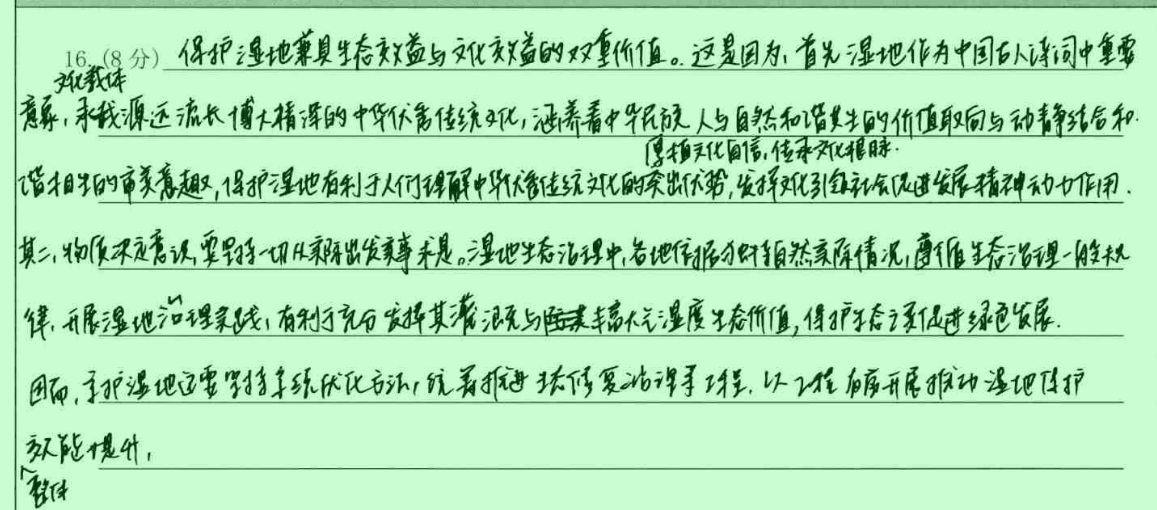 16.(8分) 保护湿地兼具生态效益与文化效益的双重价值。这是因为,首先湿地作为中国古人诗词中重要
文化载体
意象,承载源远流长博大精深的中华优秀传统文化,涵养着中华民族人与自然和谐共生的价值取向与动静结合和
厚植文化自信,传承文化根脉.
谐相生的审美意趣,保护湿地有利于人们理解中华优秀传统文化的突出优势,发挥文化引领社会促进发展精神动力作用.
其二,物质决定意识,要坚持一切从实际出发实事求是。湿地生态治理中,各地依据当时自然实际情况,遵循生态治理一般规
律,开展湿地治理实践,有利于充分发挥其灌溉与丰富大气湿度生态价值,保护生态立要促进绿色发展.
因而,守护湿地还要坚持系统优化方法,统筹推进生态修复治理等工程,以工程有序开展推动湿地保护
效能提升,
整体